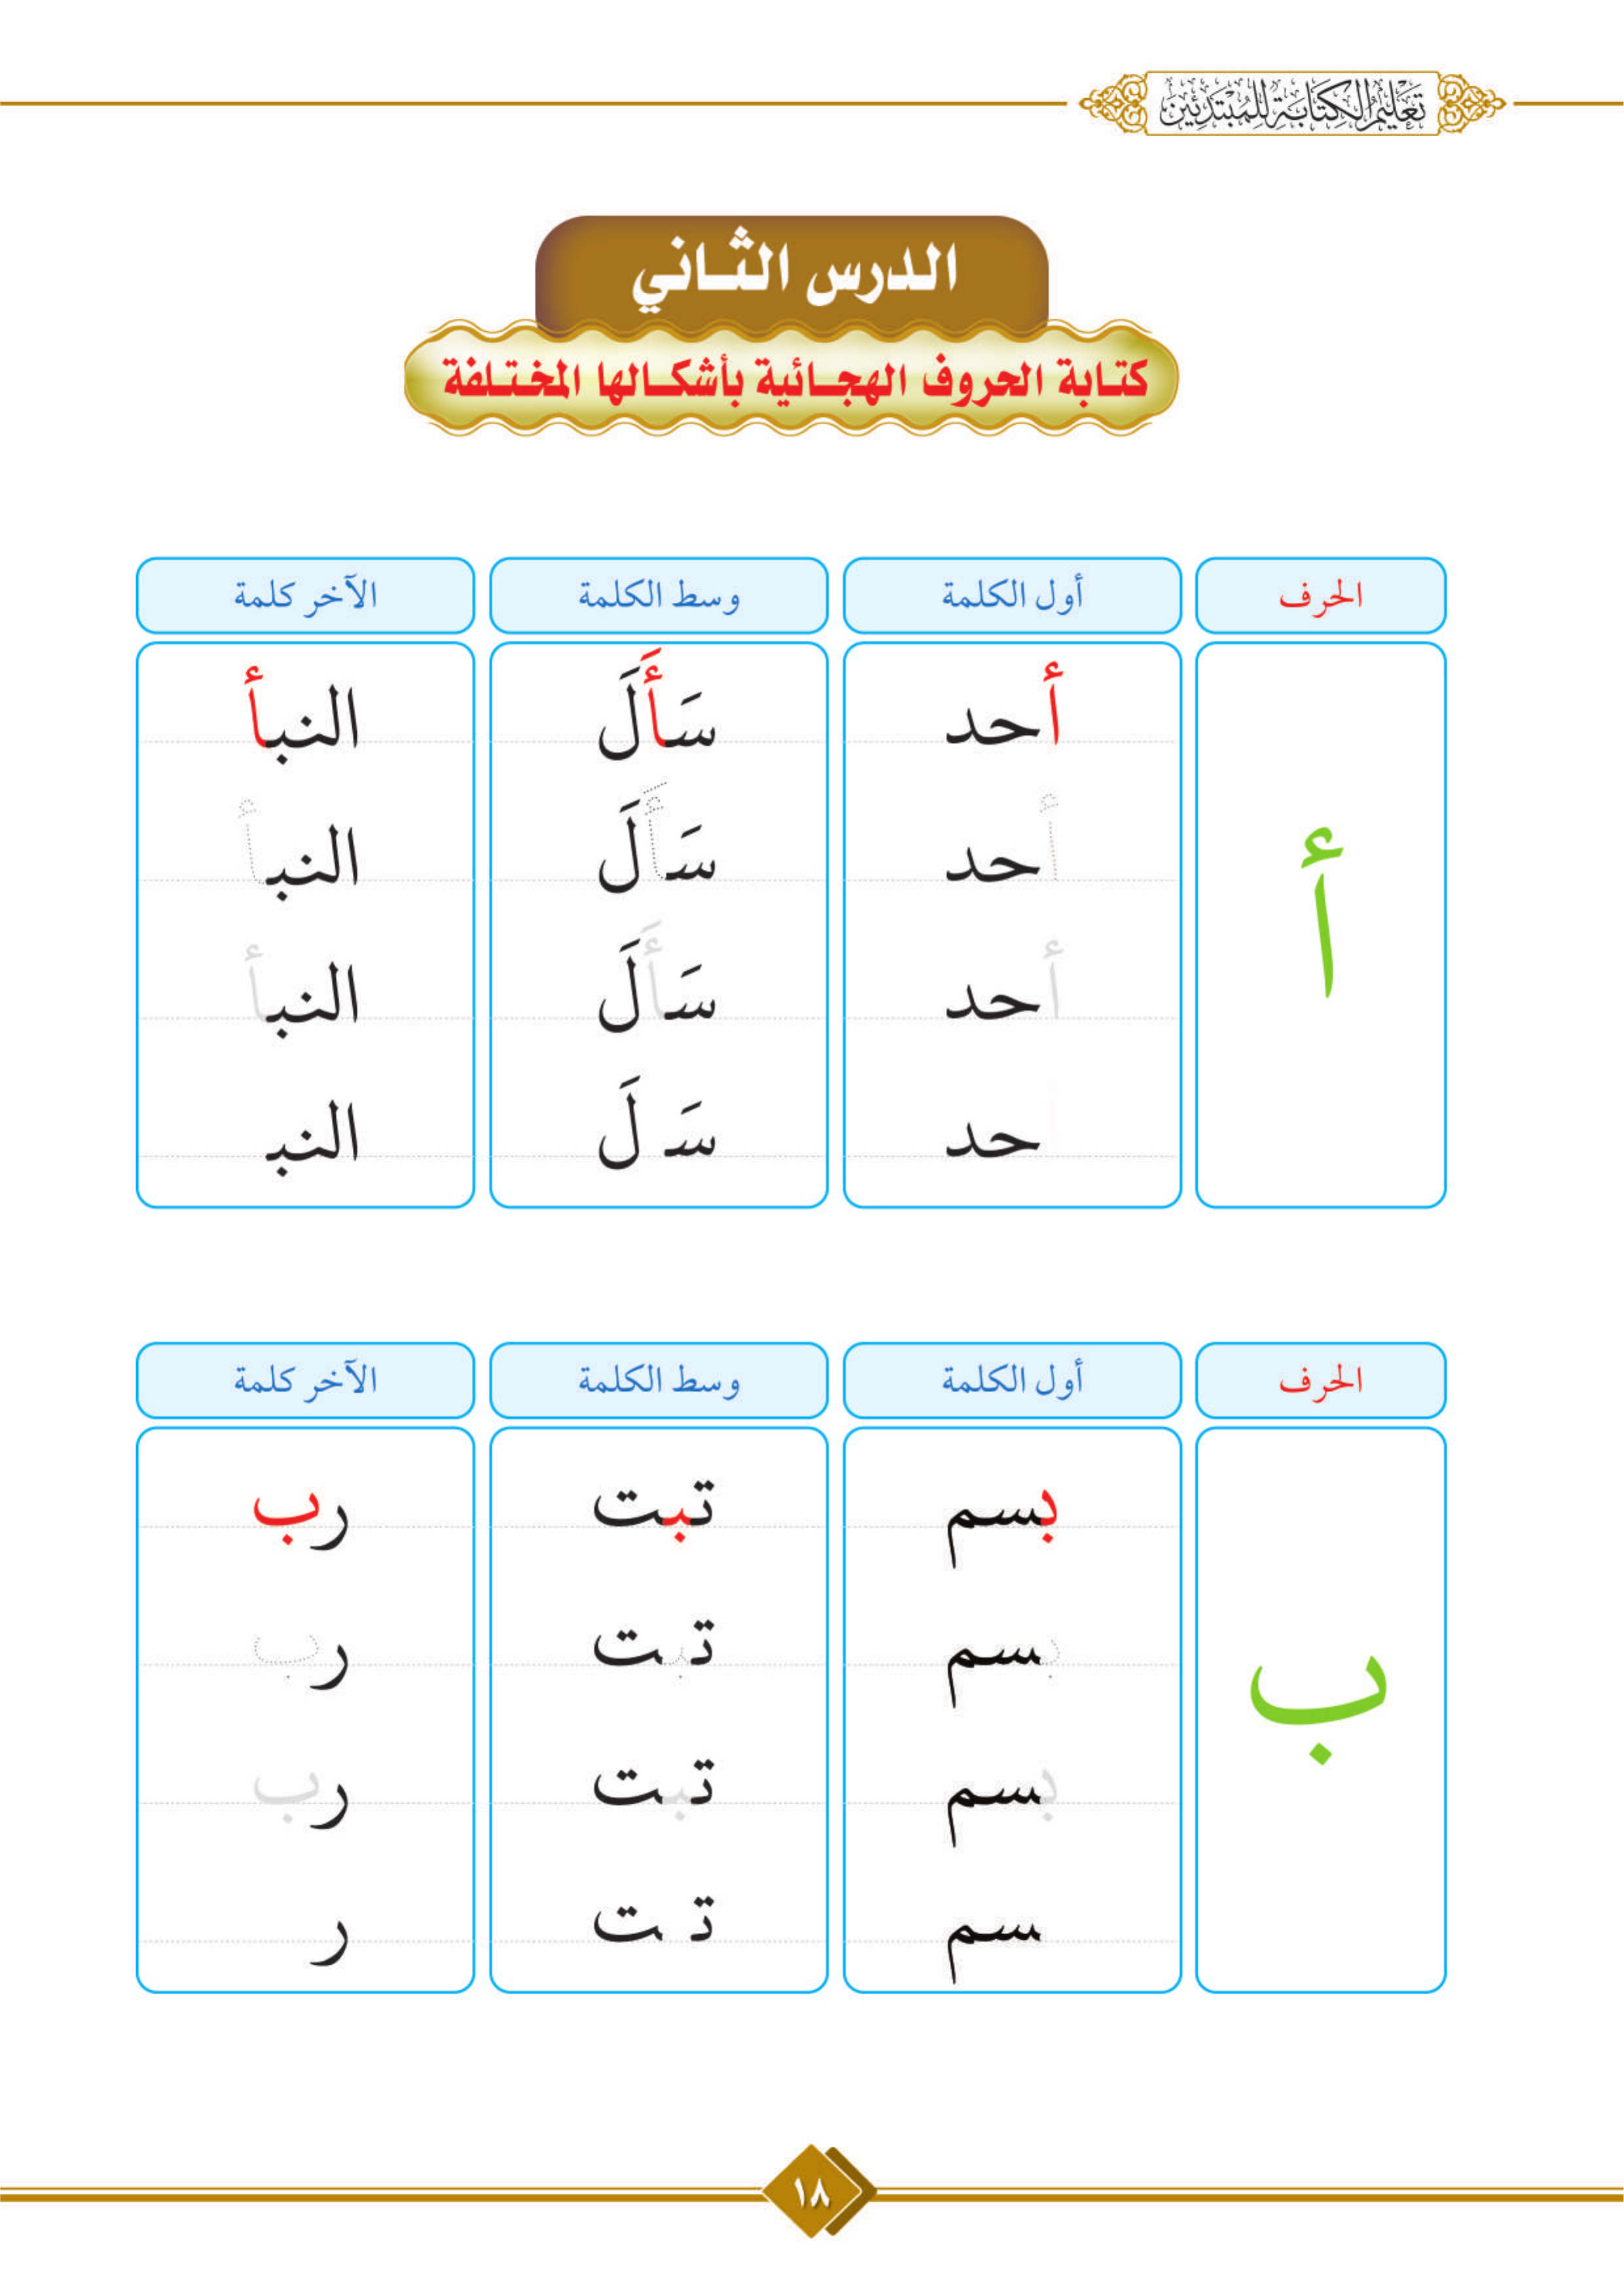 تَعْلِيمُ الْكِتَابَةِ لِلْمُبْتَدِئِينَ
الدرس الثاني
كتابة الحروف الهجائية بأشكالها المختلفة
الحرف أول الكلمة وسط الكلمة الآخر كلمة
أ
أحد سَأَلَ النبأ
أحد سَأَلَ النبأ
أحد سَأَلَ النبأ
حد سَـ لَ النبـ
الحرف أول الكلمة وسط الكلمة الآخر كلمة
ب
بسم تبت رب
بسم تبت رب
بسم تبت رب
ـسم تـ ـت ر
١٨